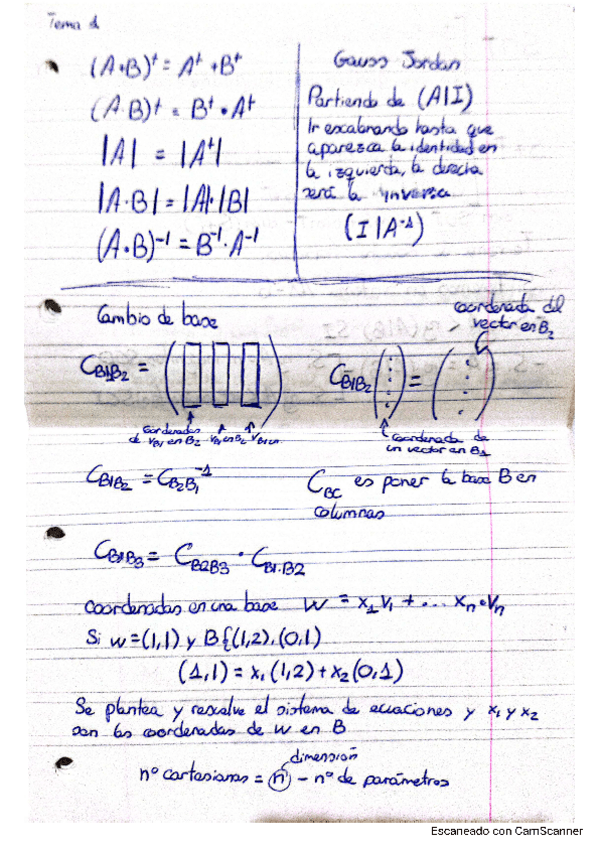 Tema 1
(A+B)^t = A^t + B^t
(A·B)^t = B^t · A^t
|A| = |A^t|
|A·B| = |A|·|B|
(A·B)^-1 = B^-1 · A^-1
Gauss Jordan
Partiendo de (A|I)
Ir escalonando hasta que
aparezca la identidad en
la izquierda, la derecha
será la inversa
(I|A^-1)
Cambio de base
coordenada del
vector en B2
C_B1B2 =
C_B1B2 ( ) = ( )
coordenadas
de V_B1 en B2 V_B1 en B2 V_B1 en
coordenada de
un vector en B1
C_B1B2 = C_B2B1^-1
C_BC es poner la base B en
columnas
C_B1B3 = C_B2B3 · C_B1B2
coordenadas en una base w = x1v1 + ... xn·vn
Si w=(1,1) y B{(1,2),(0,1)
(1,1) = x1(1,2)+x2(0,1)
Se plantea y resuelve el sistema de ecuaciones y x1 y x2
son las coordenadas de w en B
dimensión
nº cartesianas = n - nº de parámetros
Escaneado con CamScanner